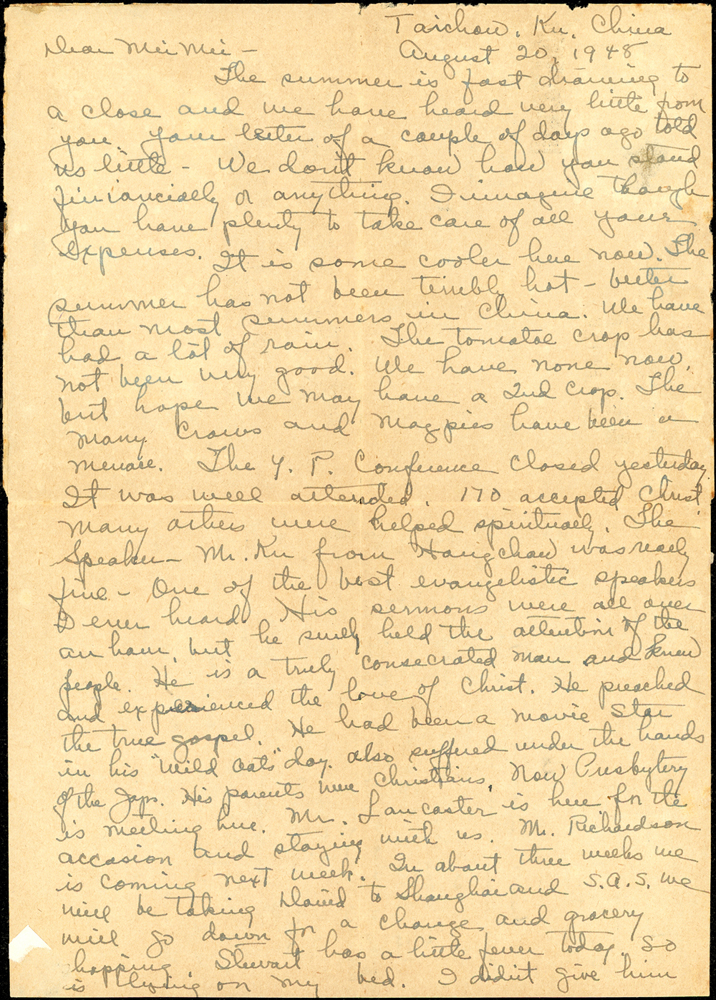 Taichow, Ku, China
Dear Mei Mei - August 20, 1948
The summer is fast drawing to
a close and we have heard very little from
you. Your letter of a couple of days ago told
us little - We don't know how you stand
financially or anything. I imagine though
you have plenty to take care of all your
expenses.
It is some cooler here now. The
summer has not been terribly hot - better
than most summers in China. We have
had a lot of rain. The tomatoe crop has
not been very good. We have none now,
but hope we may have a 2nd crop. The
many crows and magpies have been a
menace. The Y. P. Conference closed yesterday.
It was well attended. 170 accepted Christ
Many others were helped spiritually. The
Speaker - Mr. Ku from Hangchow was really
fine - One of the best evangelistic speakers
I ever heard. His sermons were all over
an hour, but he surely held the attention of the
people. He is a truly consecrated man and knew
and experienced the love of Christ. He preached
the true gospel. He had been a movie star
in his "wild oats" day. also suffered under the hands
of the Japs. His parents were Christians. Now Presbytery
is meeting here. Mr. Lancaster is here for the
occasion and staying with us. Mr. Richardson
is coming next week. In about three weeks we
will be taking David to Shanghai and S.A.S. We
will go down for a change and grocery
shopping. Stewart has a little fever today. So
is lying on my bed. I didn't give him